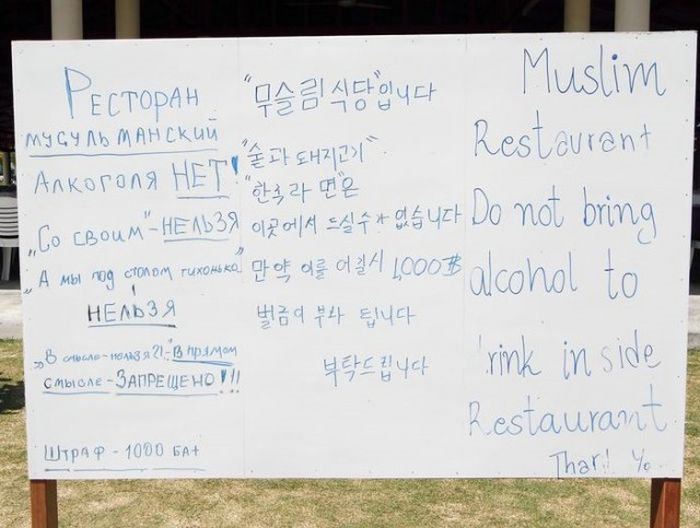 Ресторан
мусульманский
Алкоголя НЕТ!
"Со своим" - НЕЛЬЗЯ
"А мы под столом тихонько"
НЕЛЬЗЯ
"В смысле - нельзя?!" - В прямом
смысле - ЗАПРЕЩЕНО!!!
Штраф - 1000 бат
"무슬림 식당"입니다
"술과 돼지고기"
"한국라면"은
이곳에서 드실수 없습니다
만약 이를 어길시 1,000฿
벌금이 부과 됩니다
부탁드립니다
Muslim
Restaurant
Do not bring
alcohol to
rink inside
Restaurant